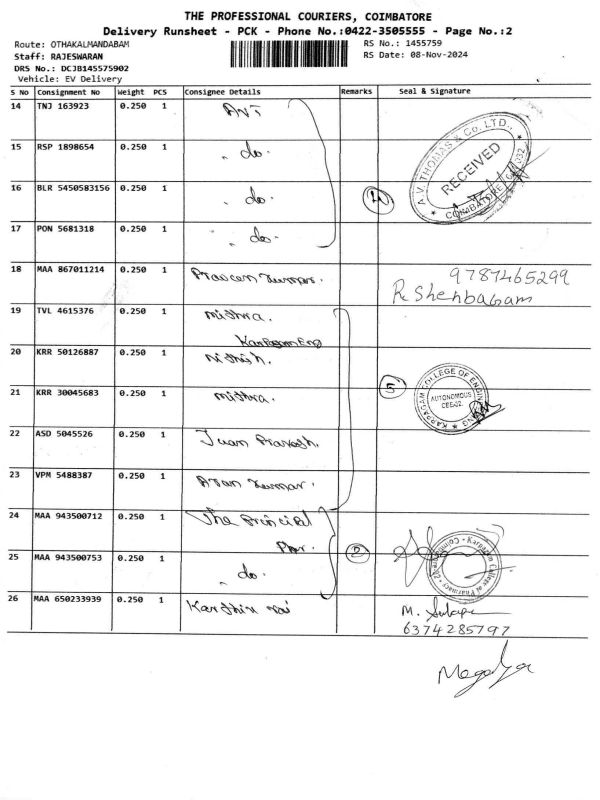 THE PROFESSIONAL COURIERS, COIMBATORE
Delivery Runsheet - PCK - Phone No.:0422-3505555 - Page No.:2
Route: OTHAKALMANDABAM
Staff: RAJESWARAN
DRS No.: DCJB145575902
Vehicle: EV Delivery
RS No.: 1455759
RS Date: 08-Nov-2024
S No Consignment No Weight PCS Consignee Details Remarks Seal & Signature
14 TNJ 163923 0.250 1 AVT
15 RSP 1898654 0.250 1 " do.
16 BLR 5450583156 0.250 1 " do.
17 PON 5681318 0.250 1 " do.
4
A.V. THOMAS & Co. LTD.,
RECEIVED
COIMBATORE
18 MAA 867011214 0.250 1 Praveen Kumar.
9787465299
R Shenbagam
19 TVL 4615376 0.250 1 Mithra.
Karpagam Eng
20 KRR 50126887 0.250 1 Nithish.
21 KRR 30045683 0.250 1 Mithra.
5
KARPAGAM COLLEGE OF ENGINEERING
AUTONOMOUS
22 ASD 5045526 0.250 1 Prakash.
23 VPM 5488387 0.250 1 Kumar.
24 MAA 943500712 0.250 1 The Princial
Phar.
25 MAA 943500753 0.250 1 " do.
2
Karpagam College of Pharmacy
26 MAA 650233939 0.250 1 Karthik
M.
6374285797